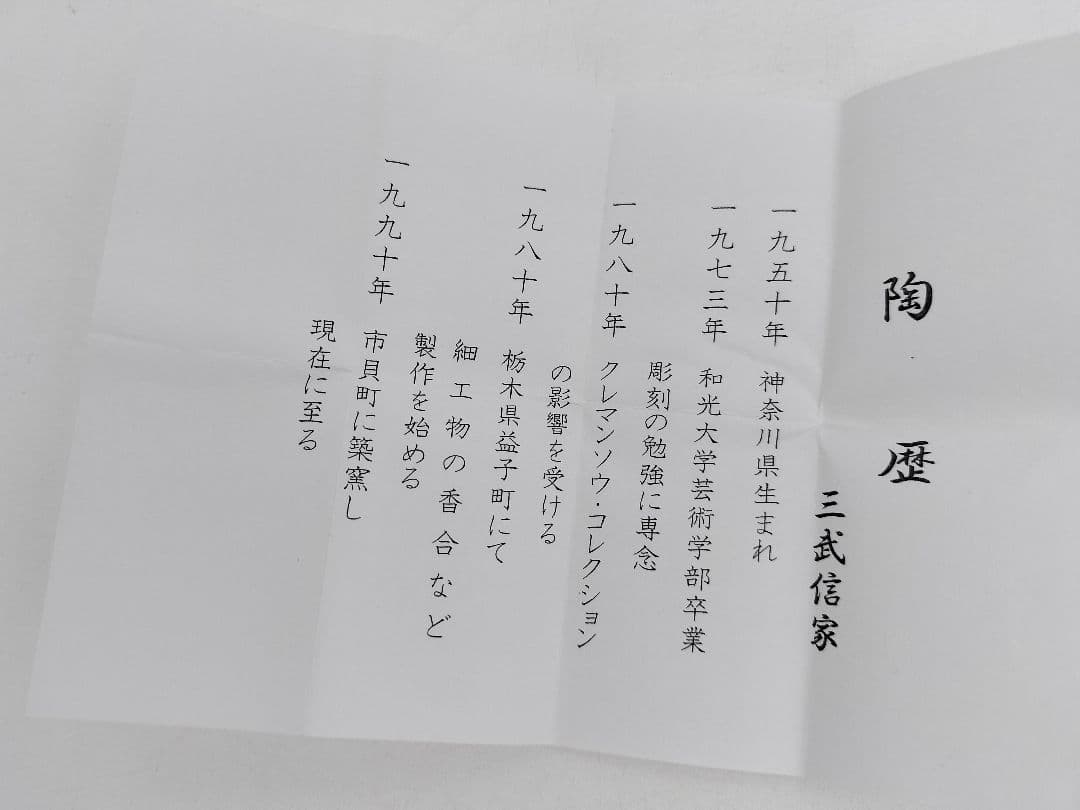 陶歴
三武信家
一九五十年 神奈川県生まれ
一九七三年 和光大学芸術学部卒業
彫刻の勉強に専念
一九八十年 クレマンソウ・コレクション
の影響を受ける
一九八十年 栃木県益子町にて
細工物の香合など
製作を始める
一九九十年 市貝町に築窯し
現在に至る